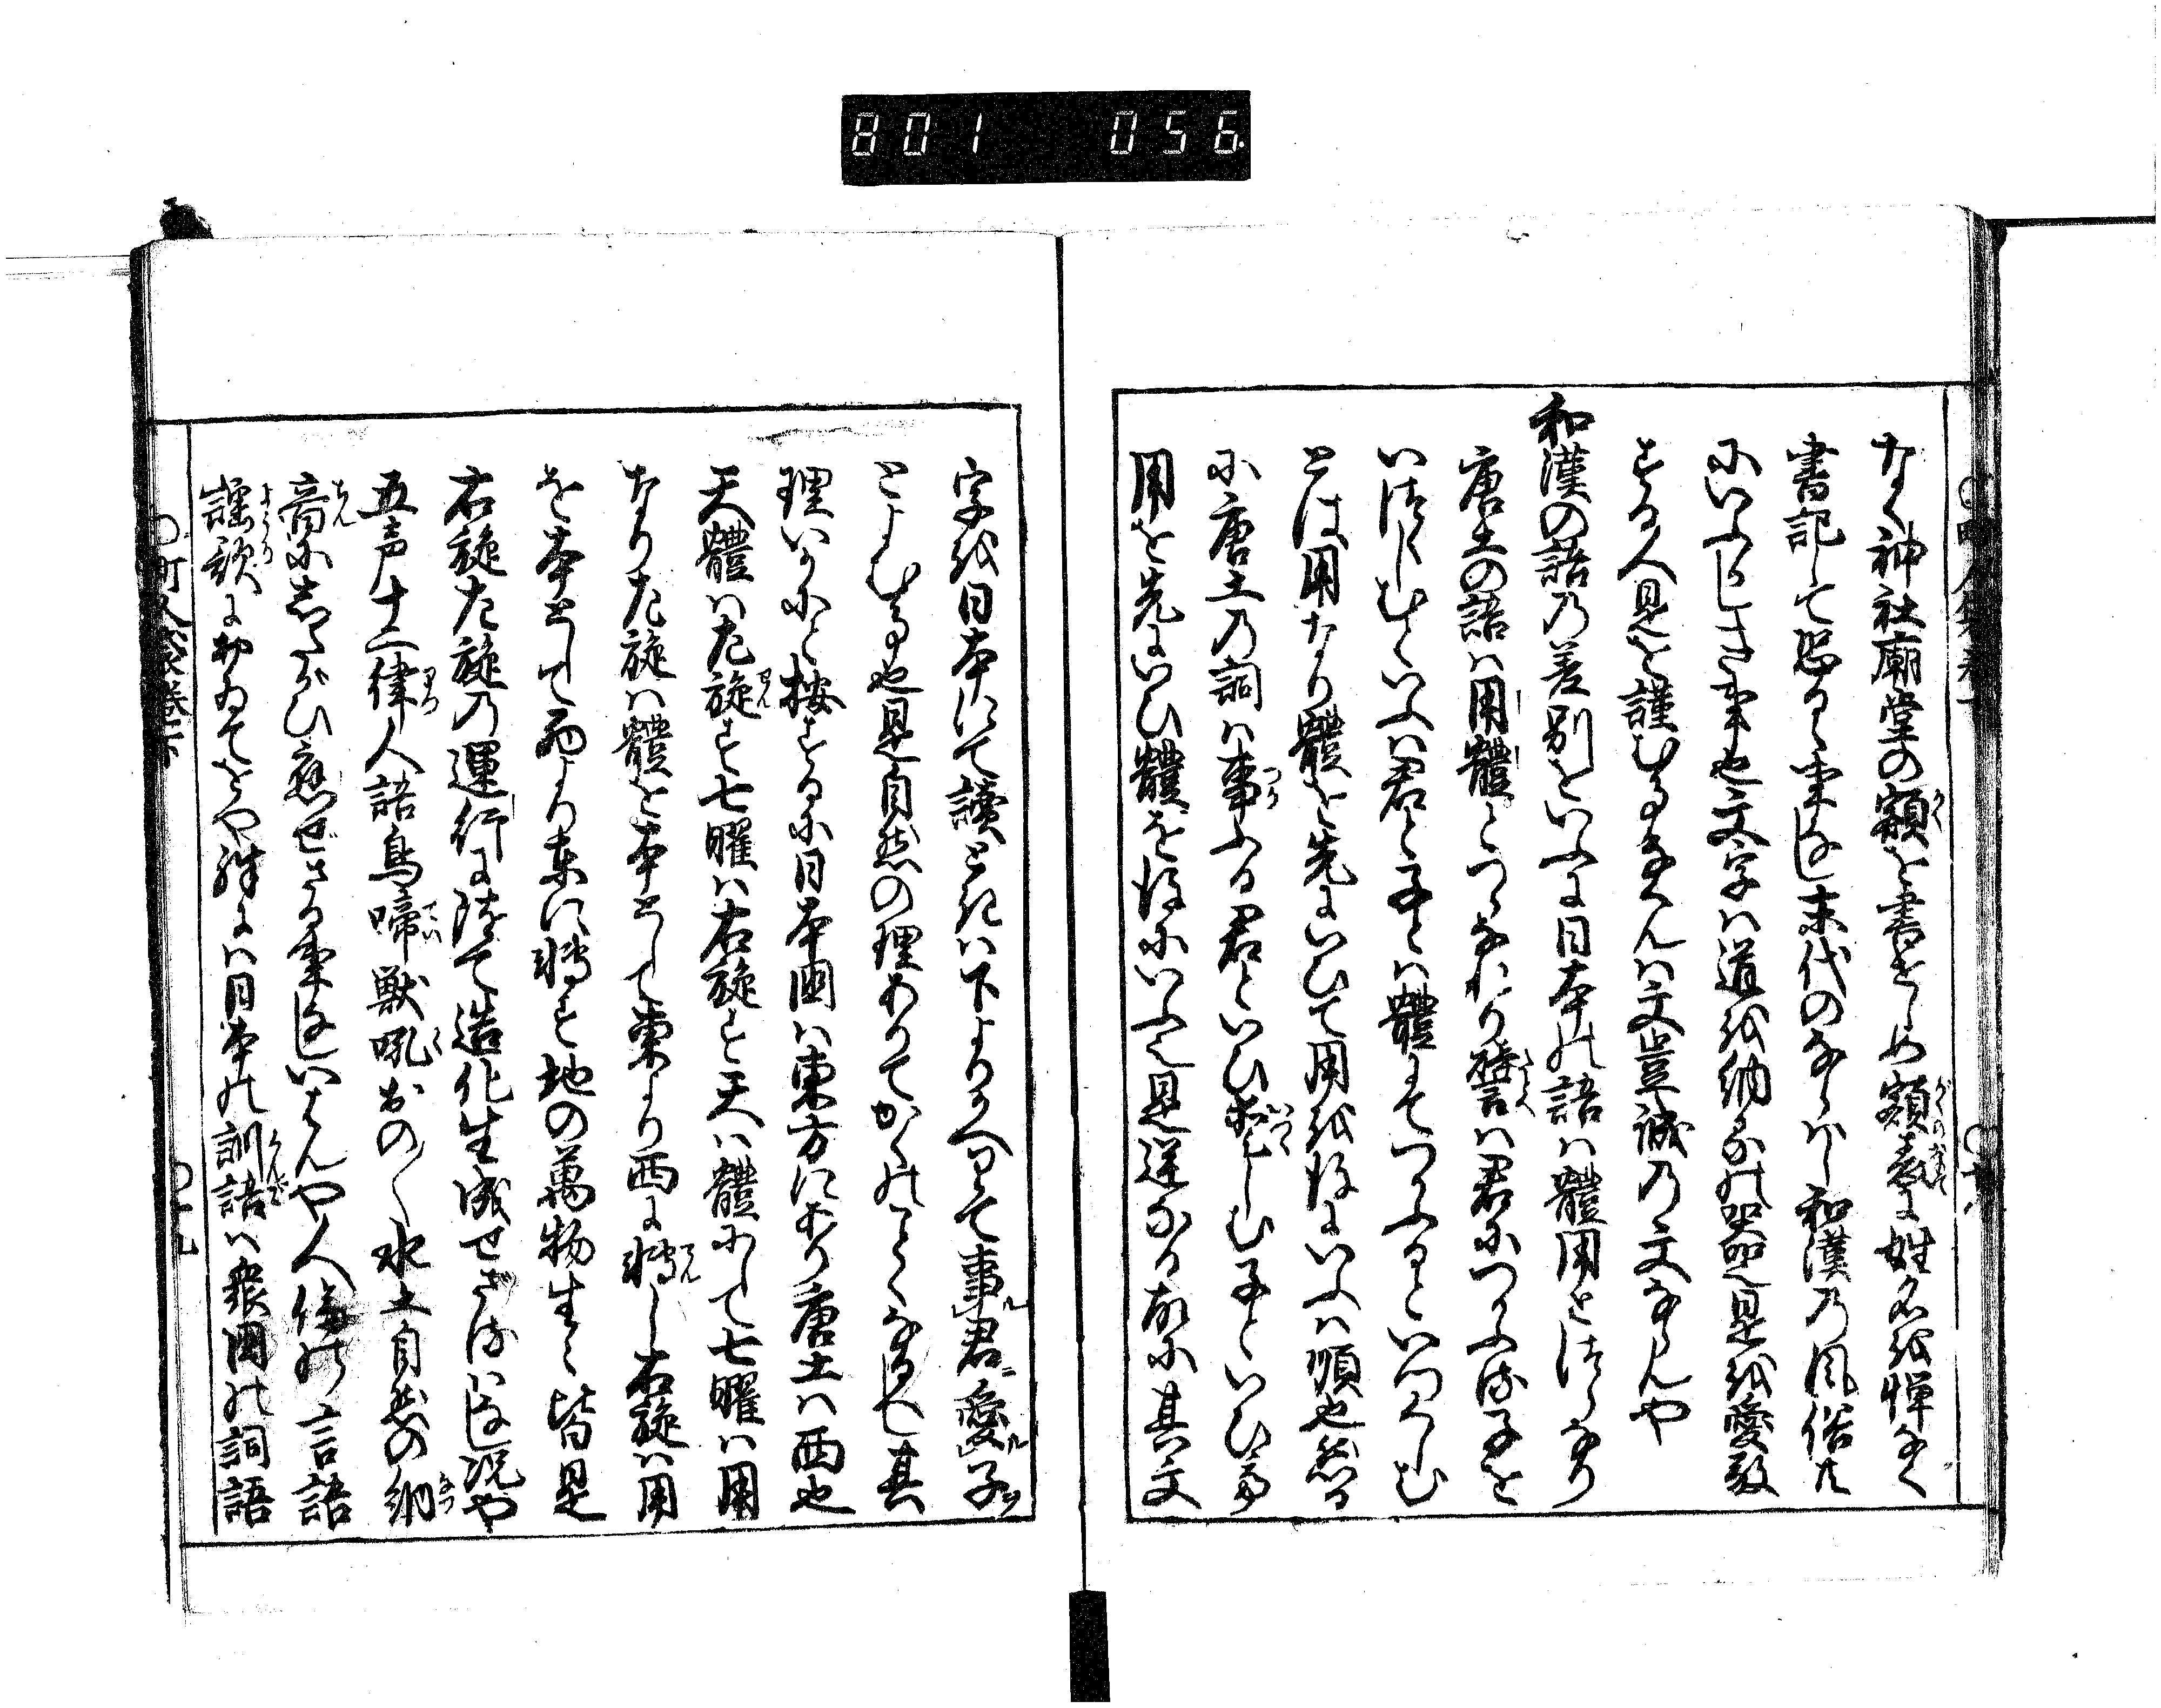 801 056
なく神社廟堂の額を書せしめ額表に姓名を憚なく
書記して恐るゝ事なし末代のならはし和漢の風俗共
にいふかしき事也文字は道を納るの器也是を愛敬
する人是を謹むるなくんは文豈誠の文ならんや
和漢の語の差別をいふに日本の語は體用とつゝなり
唐土の語は用體とつゝなれり譬は君につかふる子を
いつくしむといふは君と子とは體にてつかふるといつくしむ
とは用なり體を先にいひて用を後にいふは順也然る
に唐土の詞は事ふる君といひ愛しむ子といひて
用を先にいひ體を後にいふ是逆なる故に其文
字を日本にて讀ときは下よりかへりて事君愛子
とよむる也是自然の理ありてかくのことくなるへし其
理いかにと按するに日本国は東方にあり唐土は西也
天體は左旋す七曜は右旋す天は體にして七曜は用
なり左旋は體を本として東より西に轉し右旋は用
を本として西より東に轉す地の萬物生々皆是
右旋左旋の運行に随て造化生成せさるはなし況や
五声十二律人語鳥啼獣吼おの〱水土自然の納
音にしたがひ應せさる事なしいはんや人倫の言語
謡歌におゐてをや殊には日本の訓語は衆国の詞語
町人嚢巻下